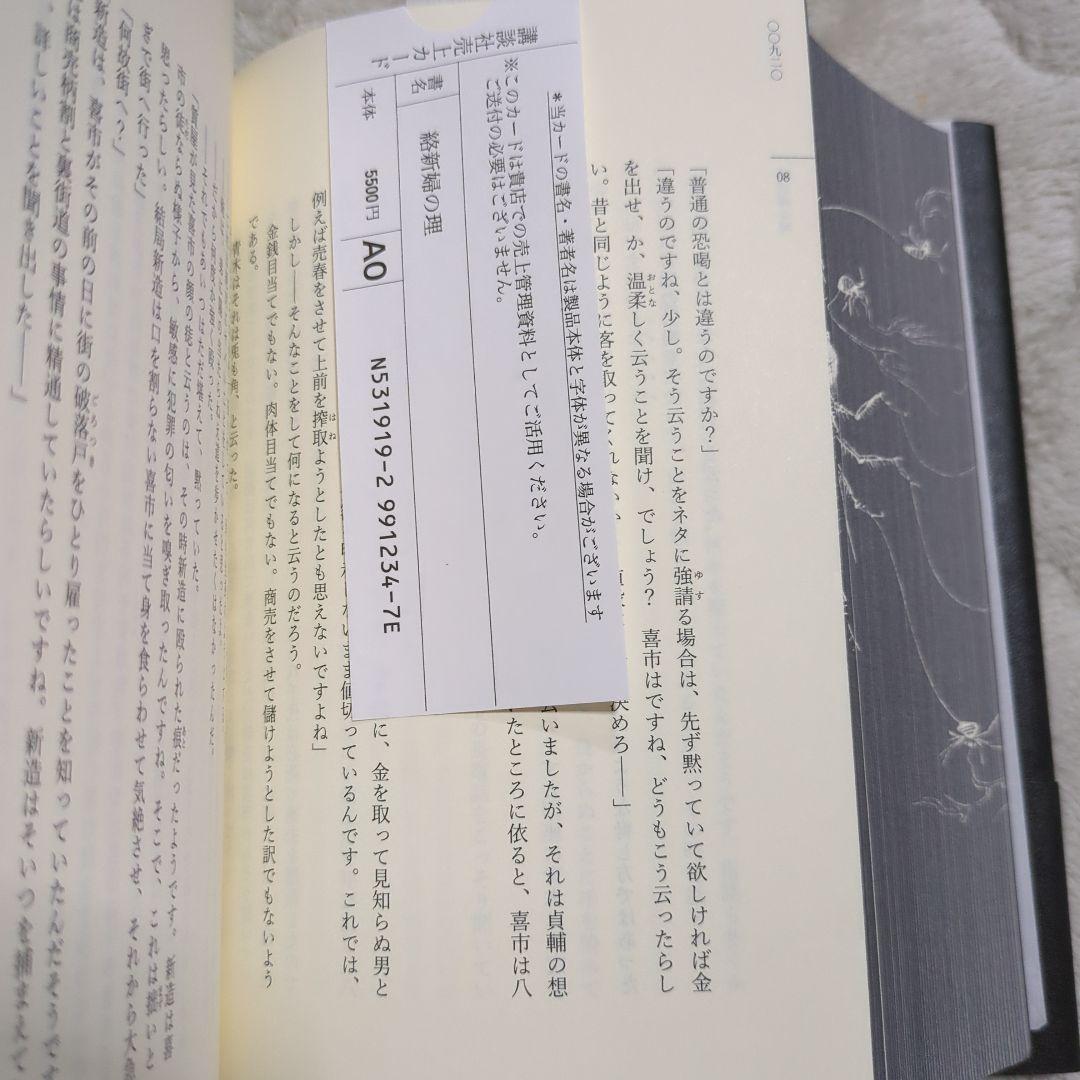 〇〇九二〇
08
「普通の恐喝とは違うのですか？」
「違うのですね、少し。そう云うことをネタに強請る場合は、先ず黙っていて欲しければ金
ゆす
を出せ、か、温柔しく云うことを聞け、でしょう？　喜市はですね、どうもこう云ったらし
おとな
い。昔と同じように客を取ってくれないか
決めろ――」
云いましたが、それは貞輔の想
たところに依ると、喜市は八
に、金を取って見知らぬ男と
まま値切っているんです。これでは、
例えば売春をさせて上前を搾取ようとしたとも思えないですよね」
はね
しかし――そんなことをして何になると云うのだろう。
金銭目当てでもない。肉体目当てでもない。商売をさせて儲けようとした訳でもないよう
である。
青木はそれは兎も角、と云った。
＊当カードの書名・著者名は製品本体と字体が異なる場合がございます
※このカードは貴店での売上管理資料としてご活用ください。
ご送付の必要はございません。
講談社売上カード
書名
絡新婦の理
本体
5500円
A0
N531919-2 991234-7E
――それでもあいつはただ堪えて、黙っていた。
「質屋が見た喜市の顔の痣と云うのは、その時新造に殴られた痕だったようです。新造は喜
市の徒ならぬ様子から、敏感に犯罪の匂いを嗅ぎ取ったんですね。そこで、これは拙いと
思ったらしい。結局新造は口を割らない喜市に当て身を食らわせて気絶させ、それから大急
ぎで街へ行った」
「何故街へ？」
新造は、喜市がその前の日に街の破落戸をひとり雇ったことを知っていたんだそうで
ごろつき
は商売柄割と裏街道の事情に精通していたらしいですね。新造はそいつを捕まえて
、詳しいことを聞き出した――」